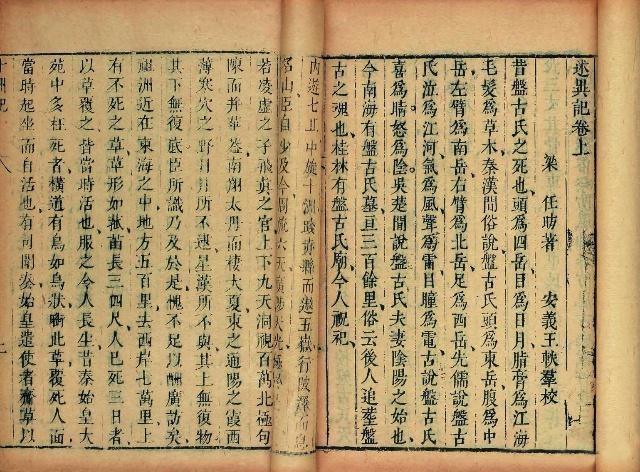 述異記卷上
梁 任昉著 安義王軼羣校
昔盤古氏之死也頭爲四岳目爲日月脂膏爲江海
毛髮爲草木秦漢間俗說盤古氏頭爲東岳腹爲中
岳左臂爲南岳右臂爲北岳足爲西岳先儒說盤古
氏泣爲江河氣爲風聲爲雷目瞳爲電古說盤古氏
喜爲晴怒爲陰吳楚間說盤古氏夫妻陰陽之始也
今南海有盤古氏墓亘三百餘里俗云後人追塟盤
古之魂也桂林有盤古氏廟今人祝祀
內遊七丘中旋十洲踐赤縣而遨五嶽行陂澤而息
名山臣自少及今周流六天廣陟天光極於
若凌虛之子飛真之官上下九天洞視百萬北極句
陳而并華蓋南翔太丹而棲大夏東之通陽之霞西
薄寒穴之野日月所不逮星漢所不與其上無復物
其下無復底臣所識乃及於是愧不足以酬廣訪矣
祖洲近在東海之中地方五百里去西岸七萬里上
有不死之草草形如菰苗長三四尺人已死三日者
以草覆之皆當時活也服之令人長生昔秦始皇大
苑中多枉死者橫道有鳥如烏狀啣此草覆死人面
當時起坐而自活也有司聞奏始皇遣使者齎草以
十洲記
一